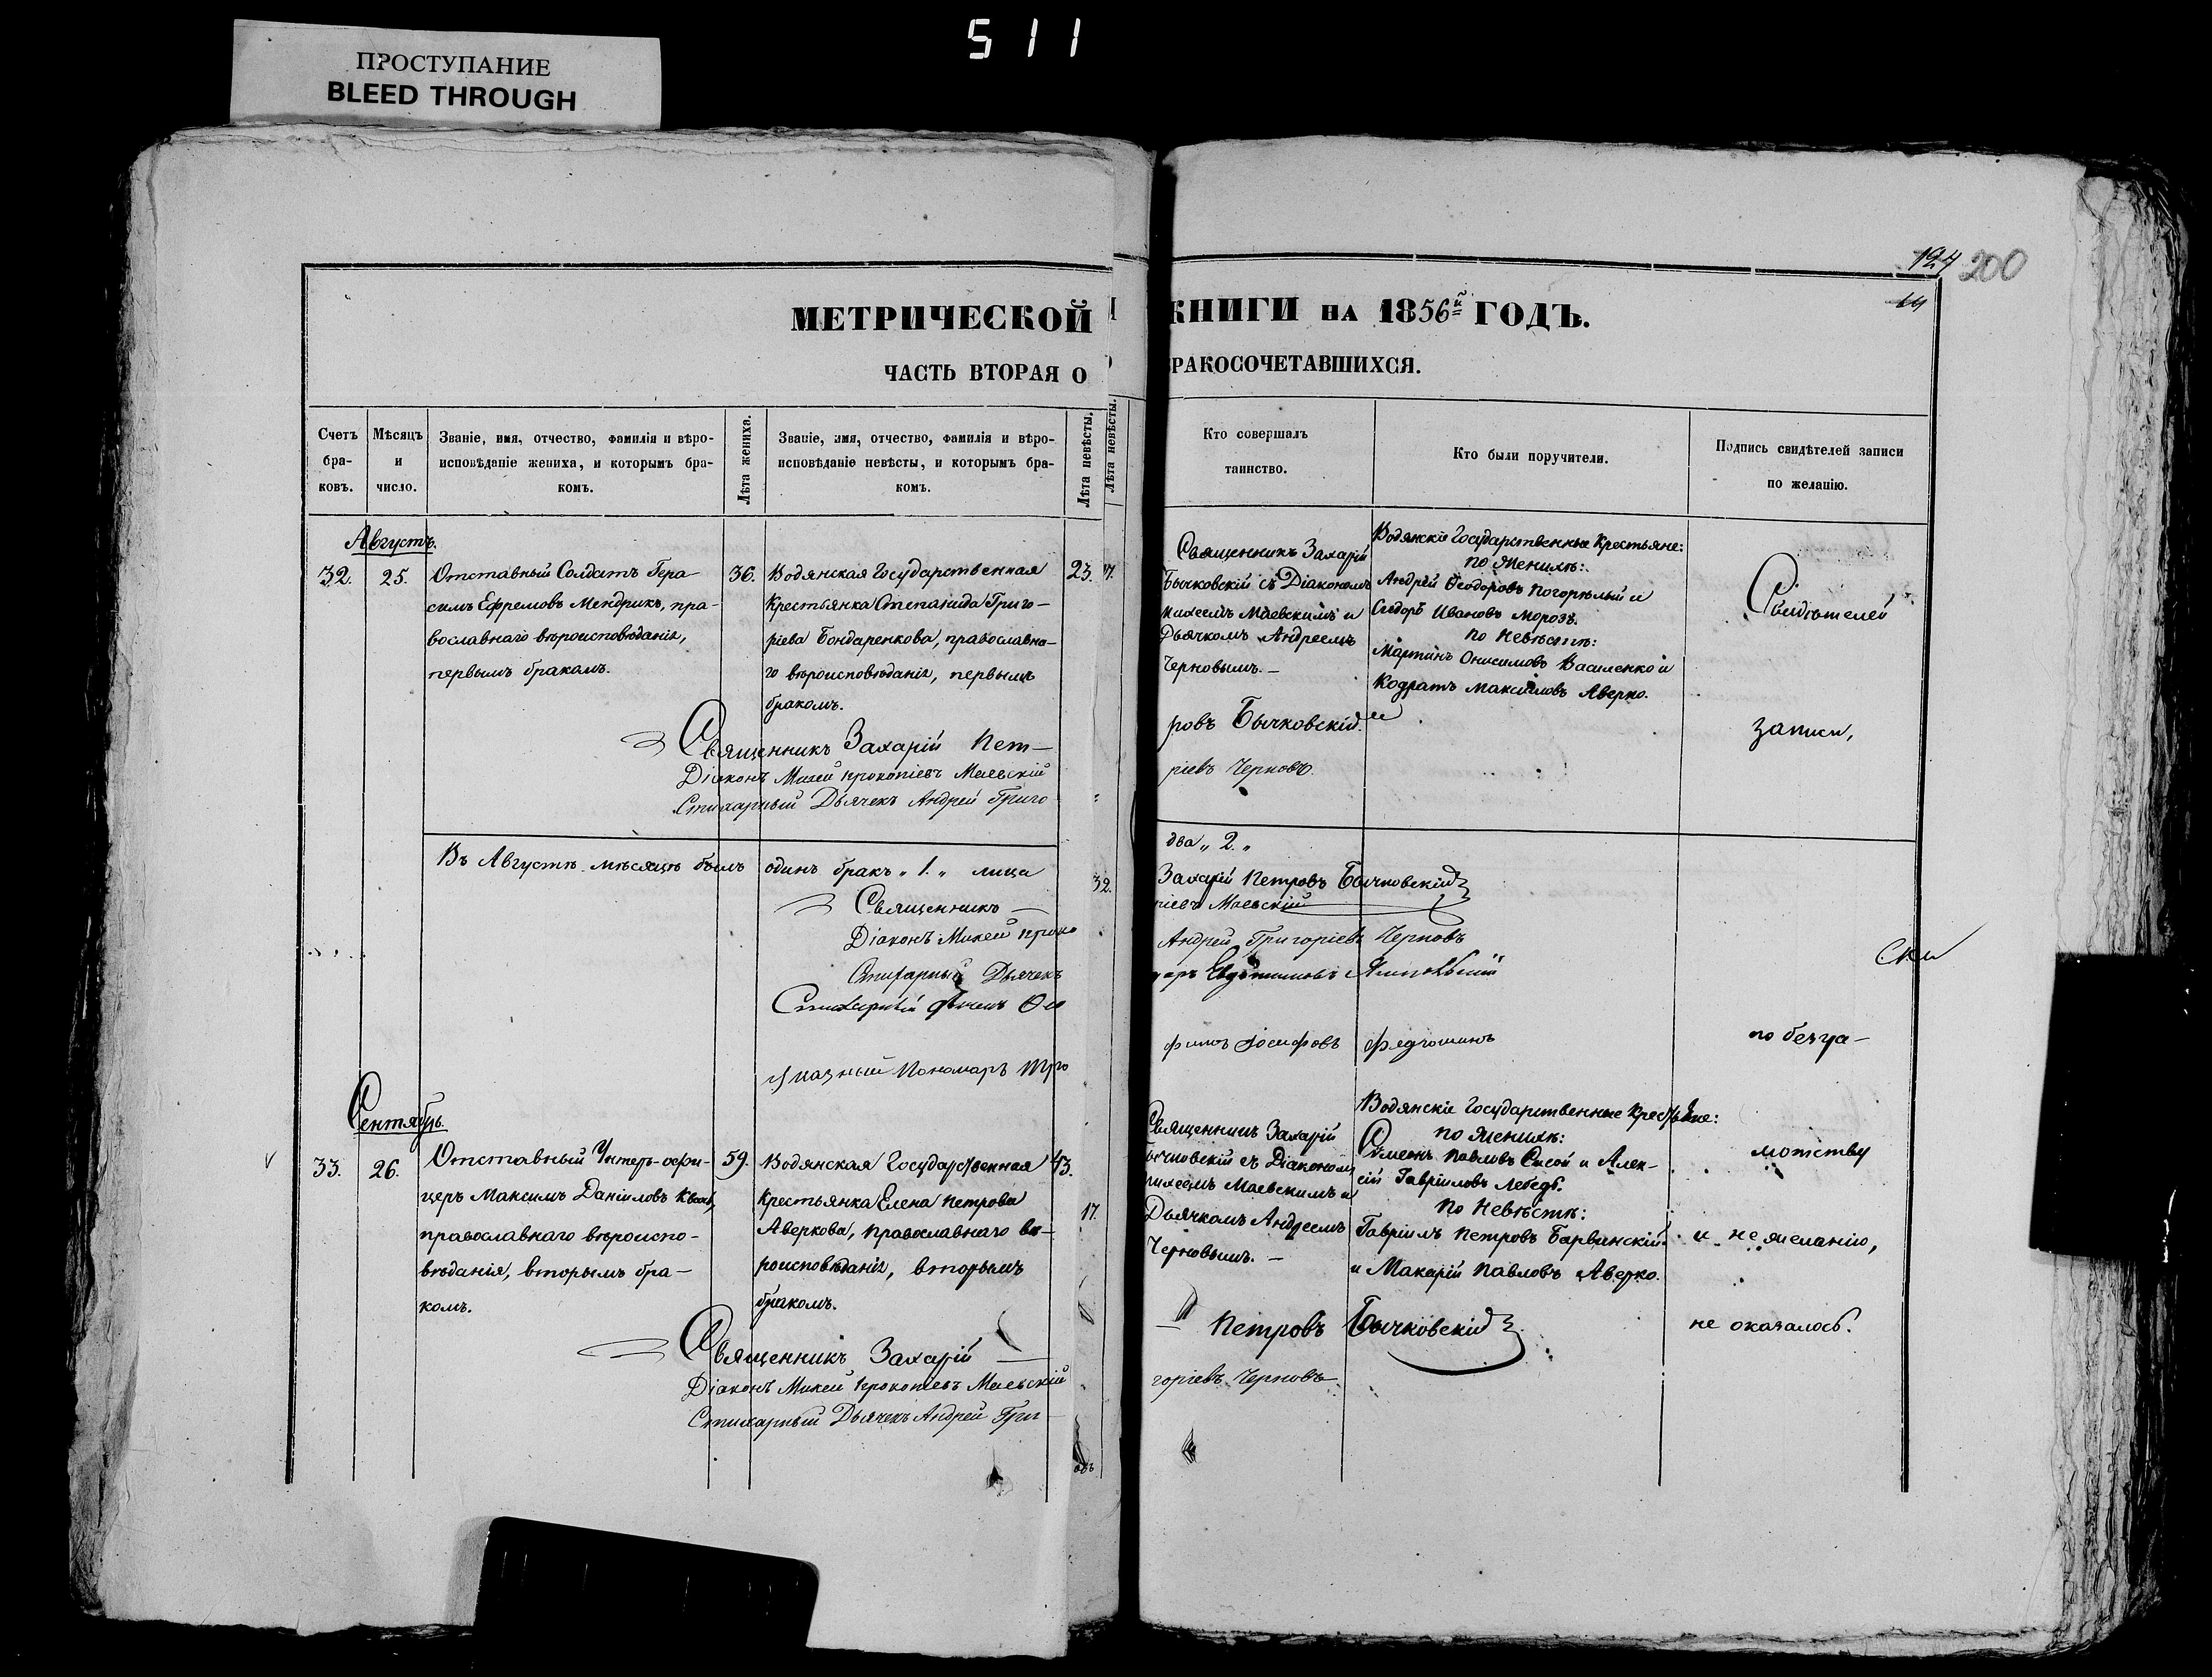 511
ПРОСТУПАНИЕ
BLEED THROUGH
194 200
МЕТРИЧЕСКОЙ КНИГИ НА 1856й ГОДЪ.
ЧАСТЬ ВТОРАЯ О БРАКОСОЧЕТАВШИХСЯ.
Счетъ
бра-
ковъ.
Мѣсяцъ
и
число.
Званіе, имя, отчество, фамилія и вѣро-
исповѣданіе жениха, и которымъ бра-
комъ.
Лѣта жениха.
Званіе, имя, отчество, фамилія и вѣро-
исповѣданіе невѣсты, и которымъ бра-
комъ.
Лѣта невѣсты.
Лѣта невѣсты.
Кто совершалъ
таинство.
Кто были поручители.
Подпись свидѣтелей записи
по желанію.
Августъ.
32.
25.
Отставный Солдатъ Гера
симъ Ефремовъ Мендрикъ, пра-
вославнаго вѣроисповѣданія,
первымъ бракамъ.
36.
Водянская Государственная
Крестьянка Степанида Григо-
ріева Бондаренкова, православна-
го вѣроисповѣданія, первымъ
бракомъ.
23.
Священникъ Захарій
Бычковскій съ Діакономъ
Михеемъ Маевскимъ и
Дьячкомъ Андреемъ
Черновымъ.-
Водянскіе Государственные Крестьяне:
по Женихѣ:
Андрей Ѳеодоровъ Погорѣлый и
Сидоръ Ивановъ Морозъ.
по Невѣстѣ:
Мартинъ Онисимовъ Василенко и
Кодратъ Максимовъ Аверко.
Свидѣтелей
записи,
Священникъ Захарій Пет-
ровъ Бычковскій
Діаконъ Михей Прокопіевъ Маевскій
Стихарный Дьячекъ Андрей Григо
ріевъ Черновъ.
Въ Августѣ мѣсяцѣ былъ одинъ бракъ „1.„ лица
два „2.„
32.
Священникъ -
Захарій Петровъ Бычковскій
Діаконъ Михей Проко
піевъ Маевскій
Стихарный Дьячекъ
Андрей Григоріевъ Черновъ
Стихарный
по безгра-
Сентябрь.
33.
26.
Отставный Унтеръ-офи-
церъ Максимъ Даніиловъ
православнаго вѣроиспо-
вѣданія, вторымъ бра-
комъ.
59.
Водянская Государственная
Крестьянка Елена Петрова
Аверкова, православнаго вѣ-
роисповѣданія, вторымъ
бракомъ.
43.
17.
Священникъ Захарій
Бычковскій съ Діакономъ
Михеемъ Маевскимъ и
Дьячкомъ Андреемъ
Черновымъ. -
Водянскіе Государственные Крестьяне:
по Женихѣ:
Симеонъ Павловъ Сисой и Алек-
сій Гавріиловъ Лебедь.
по Невѣстѣ:
Гавріилъ Петровъ Барвинскій
и Макарій Павловъ Аверко.
мотству
и не желанію,
не оказалось.
Священникъ Захарій -
- Петровъ Бычковскій
Діаконъ Михей Прокопіевъ Маевскій
Стихарный Дьячекъ Андрей Гри-
горіевъ Черновъ